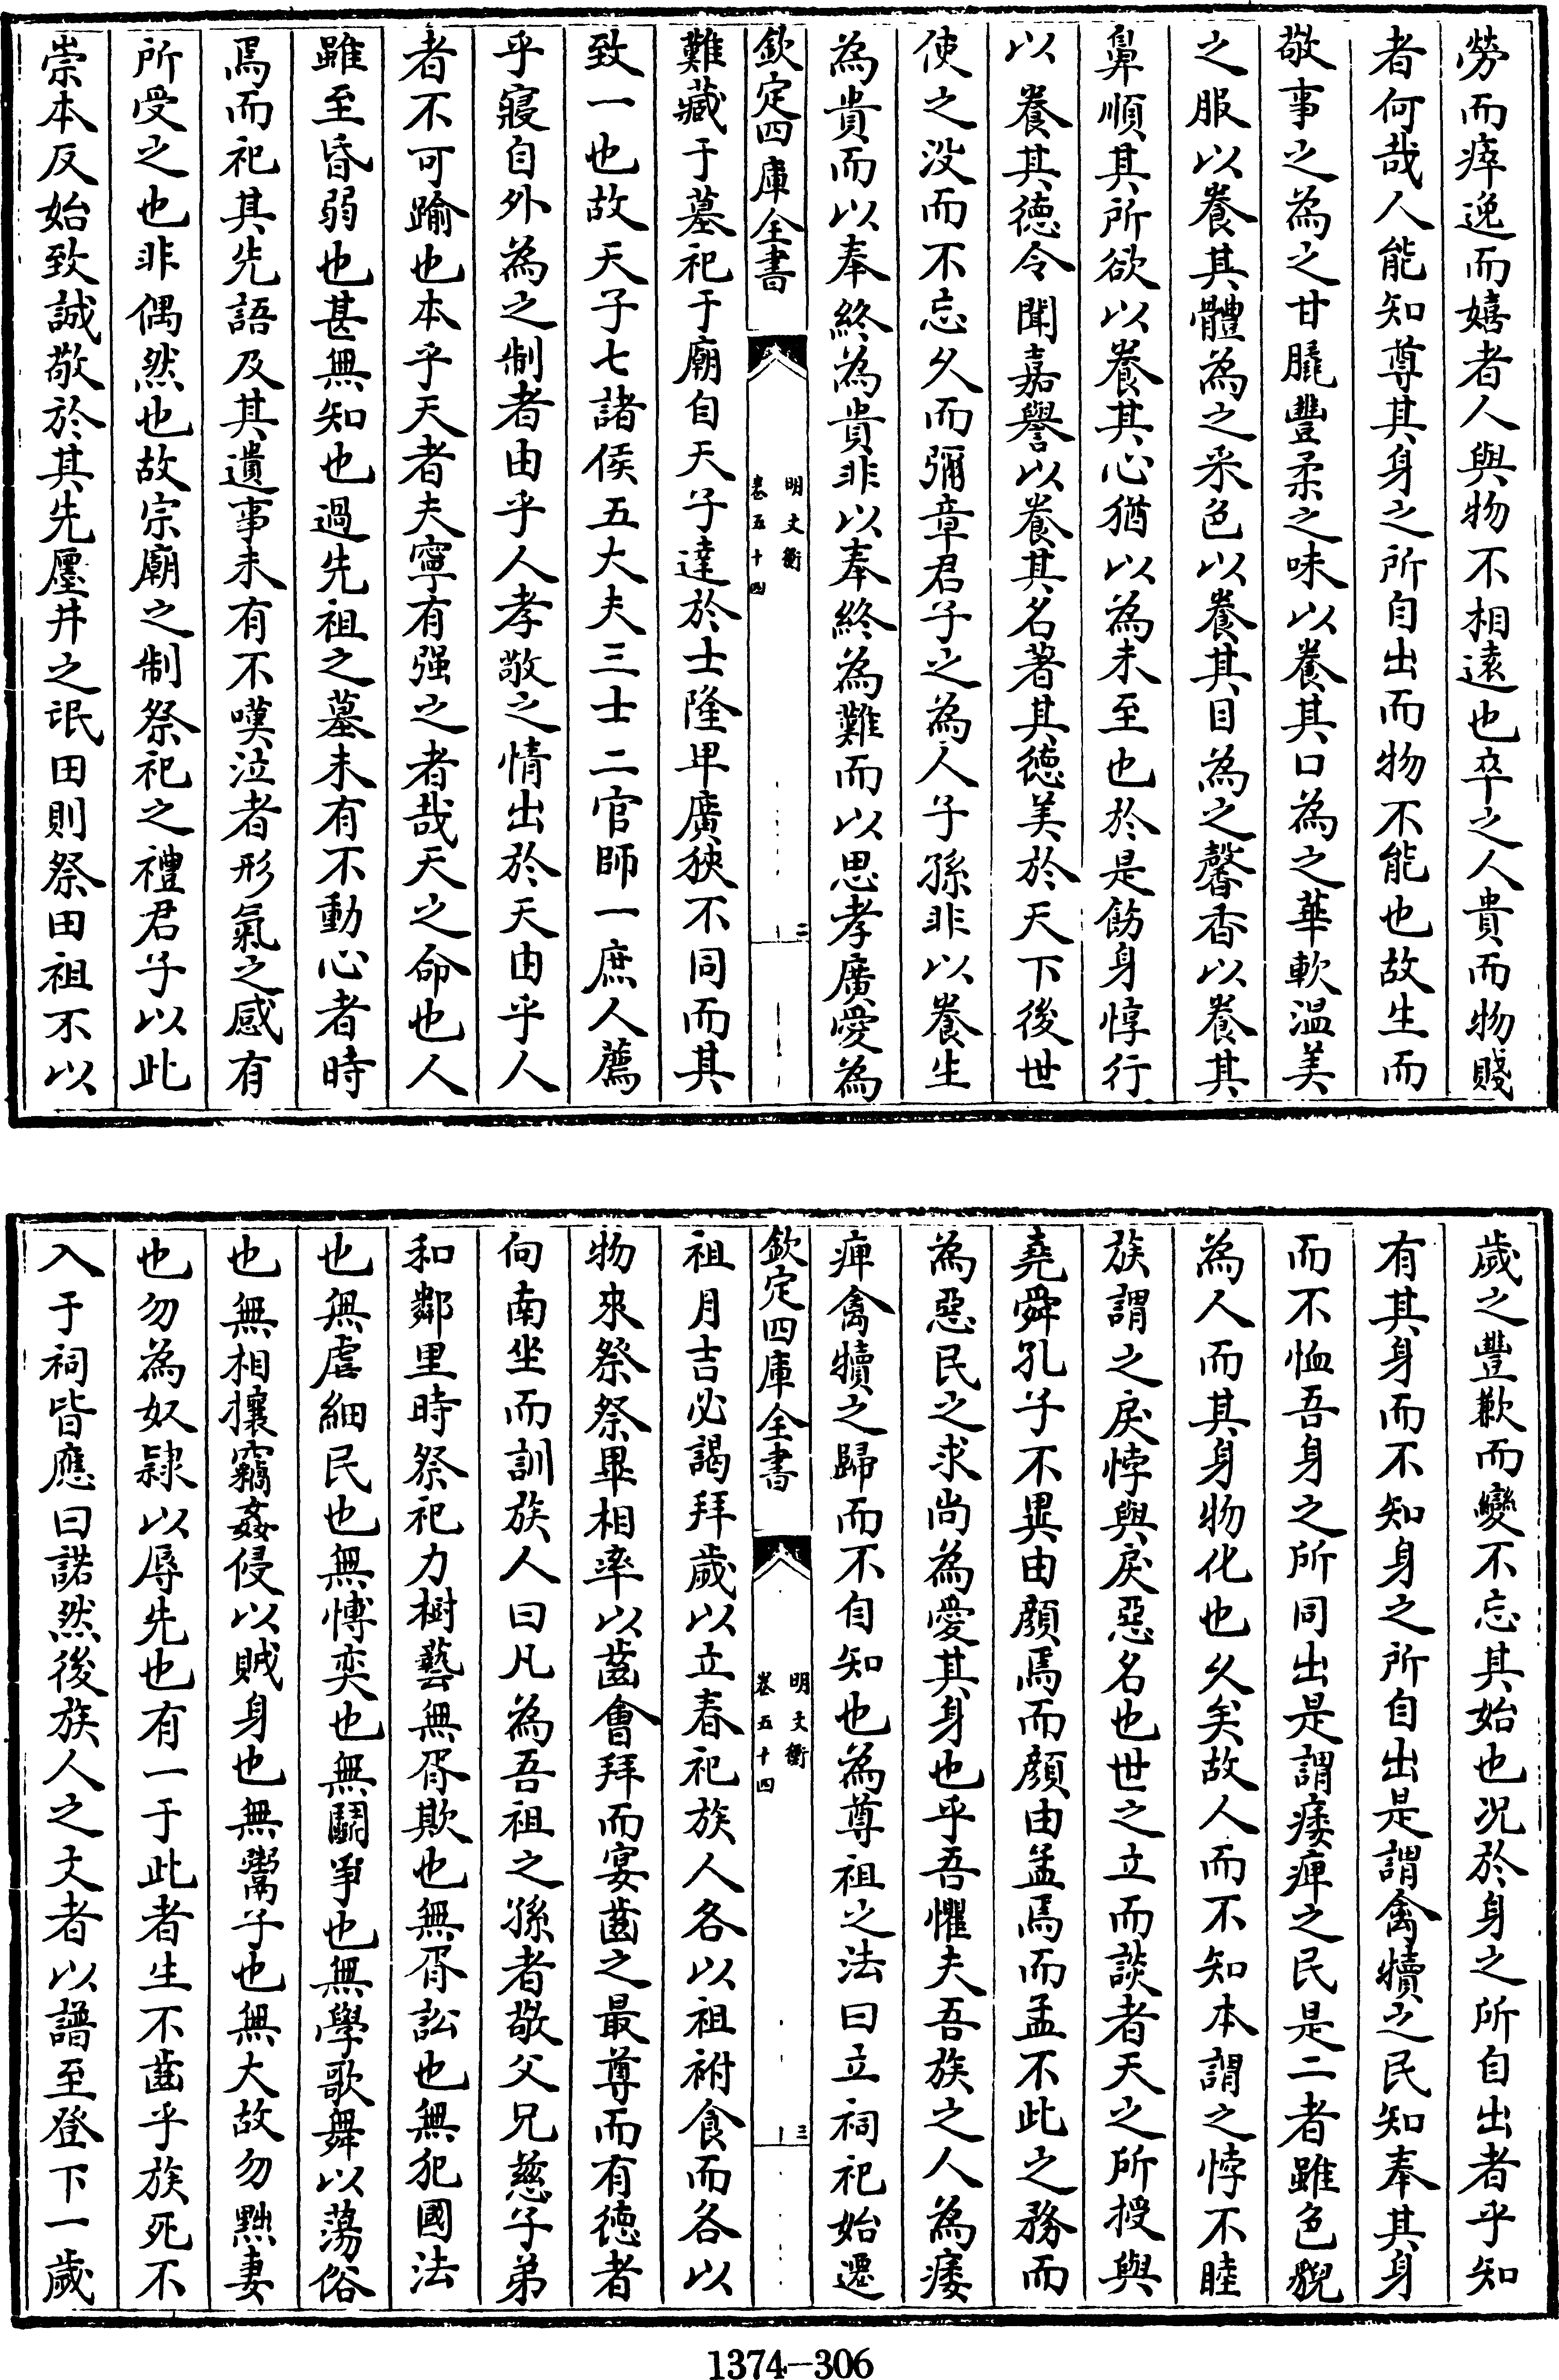 勞而瘁逸而嬉者人與物不相遠也卒之人貴而物賤
者何哉人能知尊其身之所自出而物不能也故生而
敬事之為之甘臑豐柔之味以養其口為之華軟温美
之服以養其體為之采色以養其目為之馨香以養其
鼻順其所欲以養其心猶以為未至也於是飭身惇行
以養其德令聞嘉譽以養其名著其徳美於天下後世
使之没而不忘久而彌章君子之為人子孫非以養生
為貴而以奉終為貴非以奉終為難而以思孝廣愛為
欽定四庫全書
明文衡
卷五十四
二
難藏于墓祀于廟自天子達於士隆卑廣狹不同而其
致一也故天子七諸侯五大夫三士二官師一庶人薦
乎寢自外為之制者由乎人孝敬之情出於天由乎人
者不可踰也本乎天者夫寧有强之者哉天之命也人
雖至昏弱也甚無知也過先祖之墓未有不動心者時
焉而祀其先語及其遺事未有不嘆泣者形氣之感有
所受之也非偶然也故宗廟之制祭祀之禮君子以此
崇本反始致誠敬於其先㕓井之氓田則祭田祖不以
歲之豐歉而變不忘其始也况於身之所自出者乎知
有其身而不知身之所自出是謂禽犢之民知奉其身
而不恤吾身之所同出是謂痿痺之民是二者雖色貎
為人而其身物化也久矣故人而不知本謂之悖不睦
族謂之戾悖與戾惡名也世之立而談者天之所授與
堯舜孔子不異由顔焉而顔由孟焉而孟不此之務而
為惡民之求尚為愛其身也乎吾懼夫吾族之人為痿
痺禽犢之歸而不自知也為尊祖之法曰立祠祀始遷
欽定四庫全書
明文衡
卷五十四
三
祖月吉必謁拜歲以立春祀族人各以祖祔食而各以
物來祭祭畢相率以齒會拜而宴齒之最尊而有徳者
向南坐而訓族人曰凡為吾祖之孫者敬父兄慈子弟
和鄰里時祭祀力樹藝無胥欺也無胥訟也無犯國法
也無虐細民也無愽奕也無鬬爭也無學歌舞以蕩俗
也無相攘竊姦侵以賊身也無鬻子也無大故勿黜妻
也勿為奴隷以辱先也有一于此者生不齒乎族死不
入于祠皆應曰諾然後族人之文者以譜至登下一歲
1374—306